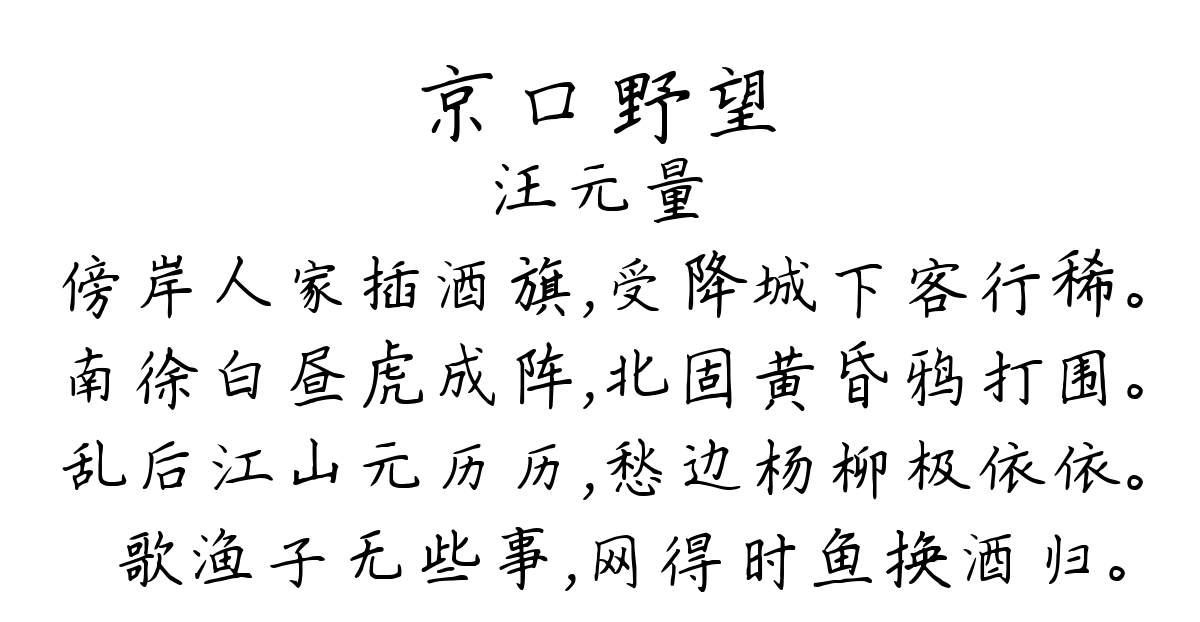 京口野望
汪元量
傍岸人家插酒旗,受降城下客行稀。
南徐白昼虎成阵,北固黄昏鸦打围。
乱后江山元历历,愁边杨柳极依依。
歌渔子无些事,网得时鱼换酒归。